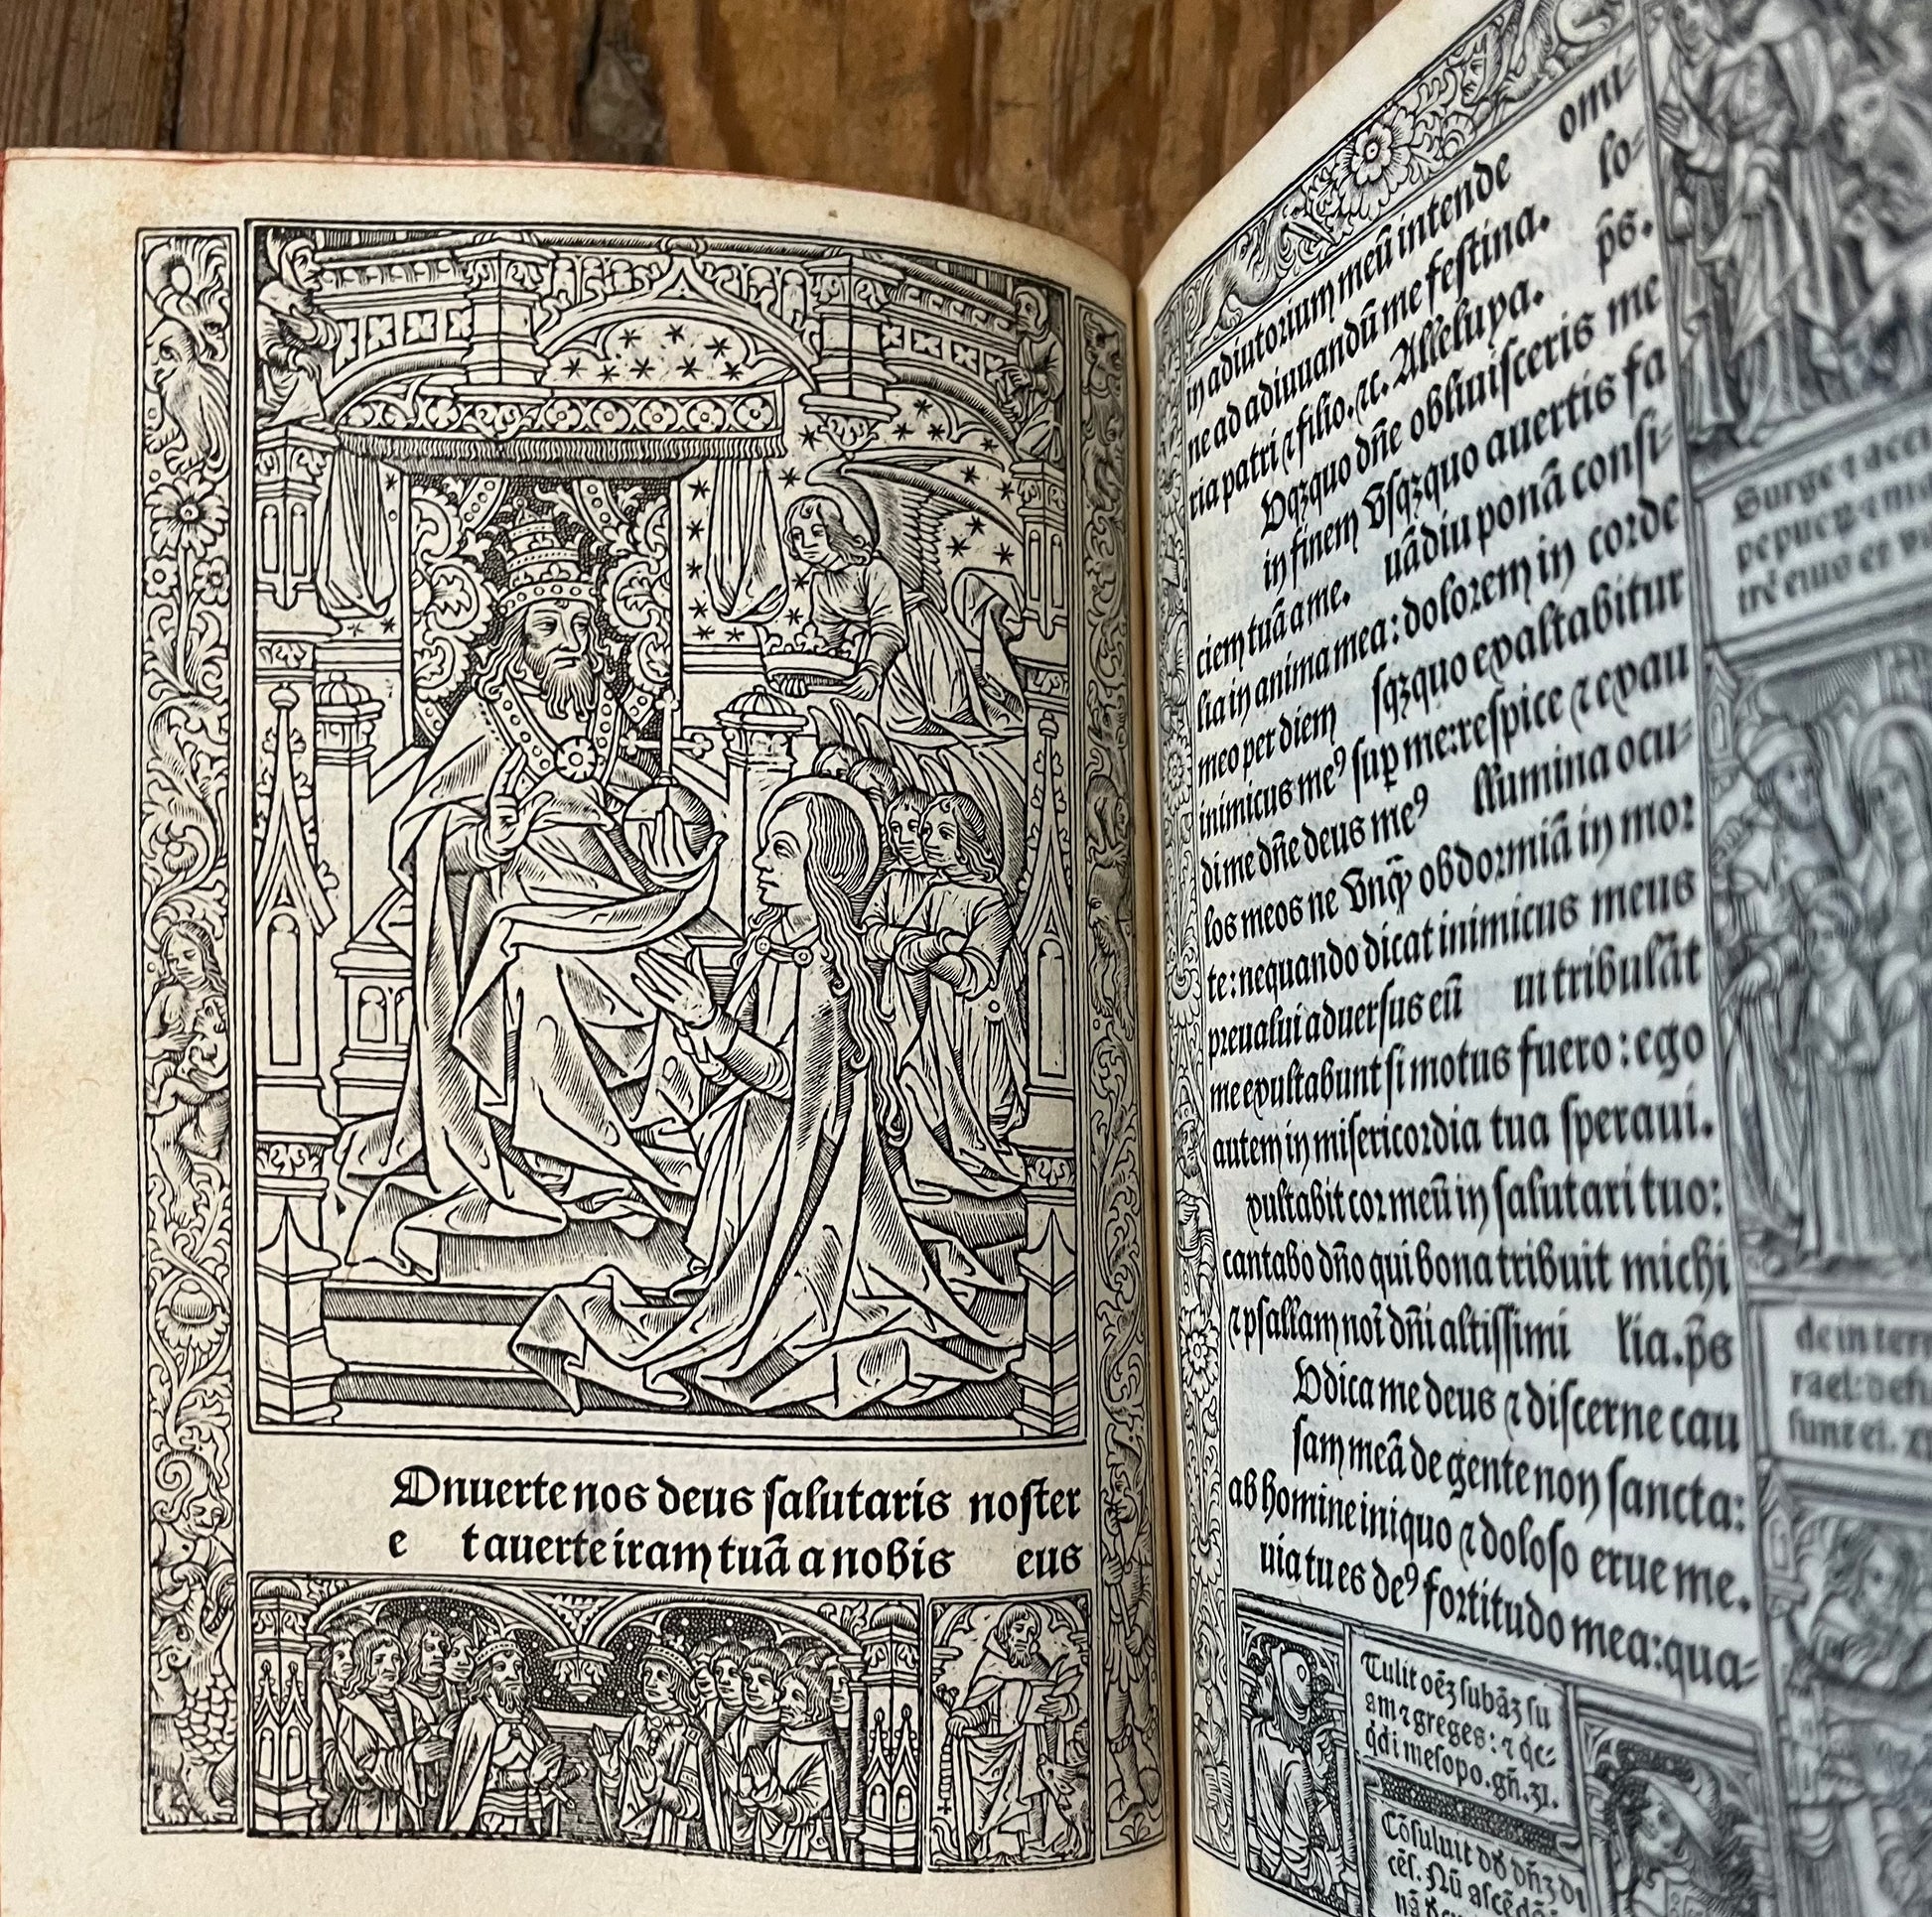 Onuerte nos deus salutaris noster
e t auerte iram tuã a nobis eus
in adiutorium meũ intende omi-
ne ad adiuuandũ me festina. lo-
ria patri ⁊ filio. ⁊c. Alleluya. p̃s.
Vqꝫquo dñe obliuisceris me
in finem Vsqꝫquo auertis fa
ciem tuã a me. uãdiu ponã consi-
lia in anima mea: dolorem in corde
meo per diem sqꝫquo exaltabitur
inimicus meꝰ sup̱ me: respice ⁊ exau
di me dñe deus meꝰ llumina ocu-
los meos ne vnq̃ obdormiã in mor
te: nequando dicat inimicus meus
preualui aduersus eũ ui tribulãt
me exultabunt si motus fuero: ego
autem in misericordia tua speraui.
xultabit cor meũ in salutari tuo:
cantabo dño qui bona tribuit michi
⁊ psallam noĩ dñi altissimi lia. p̃s
Vdica me deus ⁊ discerne cau
sam meã de gente non sancta:
ab homine iniquo ⁊ doloso erue me.
uia tu es deꝰ fortitudo mea: qua-
Tulit oẽꝫ subãꝫ su
am ⁊ greges: ⁊ q̃c-
q̃d i mesopo. gñ. 31.
Cõsuluit
cẽs. Nũ ascẽdã
Surge ⁊ acci
de in terr
rael: defu
sunt ei.